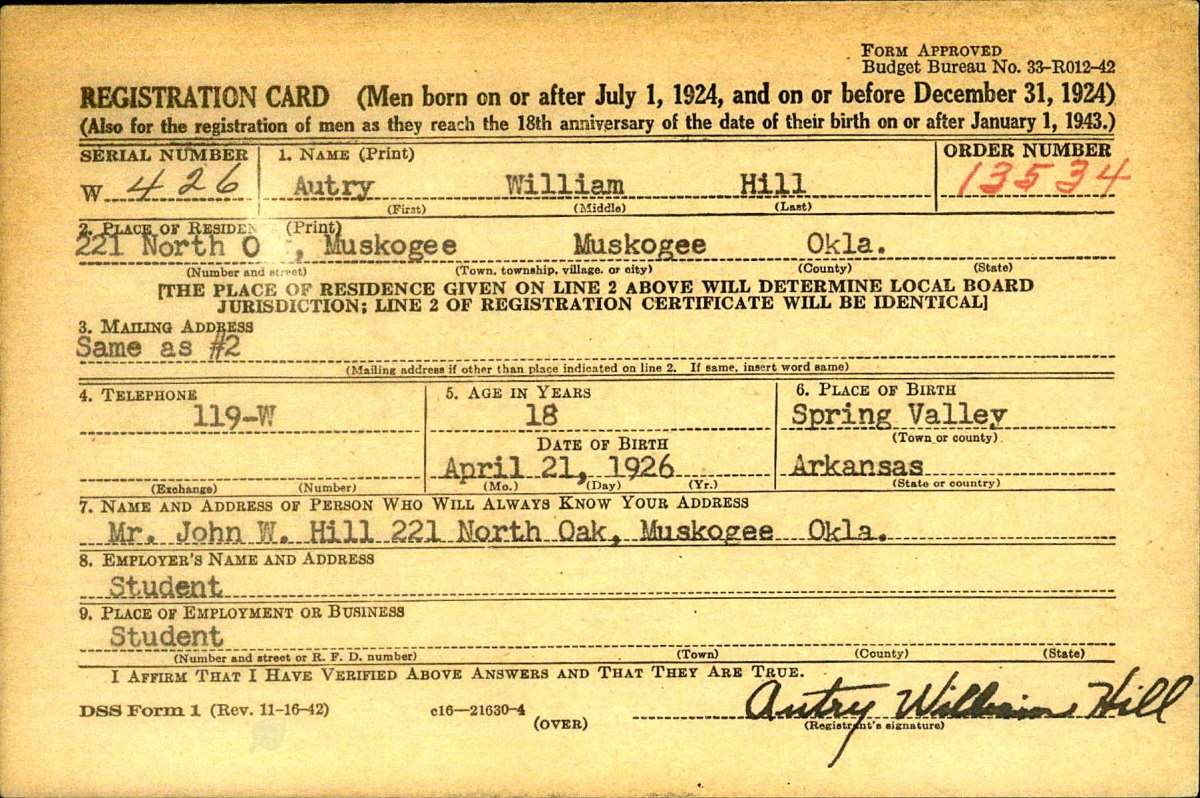 FORM APPROVED
Budget Bureau No. 33-R012-42
REGISTRATION CARD (Men born on or after July 1, 1924, and on or before December 31, 1924)
(Also for the registration of men as they reach the 18th anniversary of the date of their birth on or after January 1, 1943.)
SERIAL NUMBER 1. NAME (Print) ORDER NUMBER
W 426 Autry William Hill 13534
(First) (Middle) (Last)
2. PLACE OF RESIDEN (Print)
221 North O , Muskogee Muskogee Okla.
(Number and street) (Town, township, village, or city) (County) (State)
[THE PLACE OF RESIDENCE GIVEN ON LINE 2 ABOVE WILL DETERMINE LOCAL BOARD
JURISDICTION; LINE 2 OF REGISTRATION CERTIFICATE WILL BE IDENTICAL]
3. MAILING ADDRESS
Same as #2
(Mailing address if other than place indicated on line 2. If same, insert word same)
4. TELEPHONE 5. AGE IN YEARS 6. PLACE OF BIRTH
119-W 18 Spring Valley
DATE OF BIRTH (Town or county)
April 21, 1926 Arkansas
(Exchange) (Number) (Mo.) (Day) (Yr.) (State or country)
7. NAME AND ADDRESS OF PERSON WHO WILL ALWAYS KNOW YOUR ADDRESS
Mr. John W. Hill 221 North Oak, Muskogee Okla.
8. EMPLOYER'S NAME AND ADDRESS
Student
9. PLACE OF EMPLOYMENT OR BUSINESS
Student
(Number and street or R. F. D. number) (Town) (County) (State)
I AFFIRM THAT I HAVE VERIFIED ABOVE ANSWERS AND THAT THEY ARE TRUE.
DSS Form 1 (Rev. 11-16-42) c16—21630-4 Autry William Hill
(OVER) (Registrant's signature)